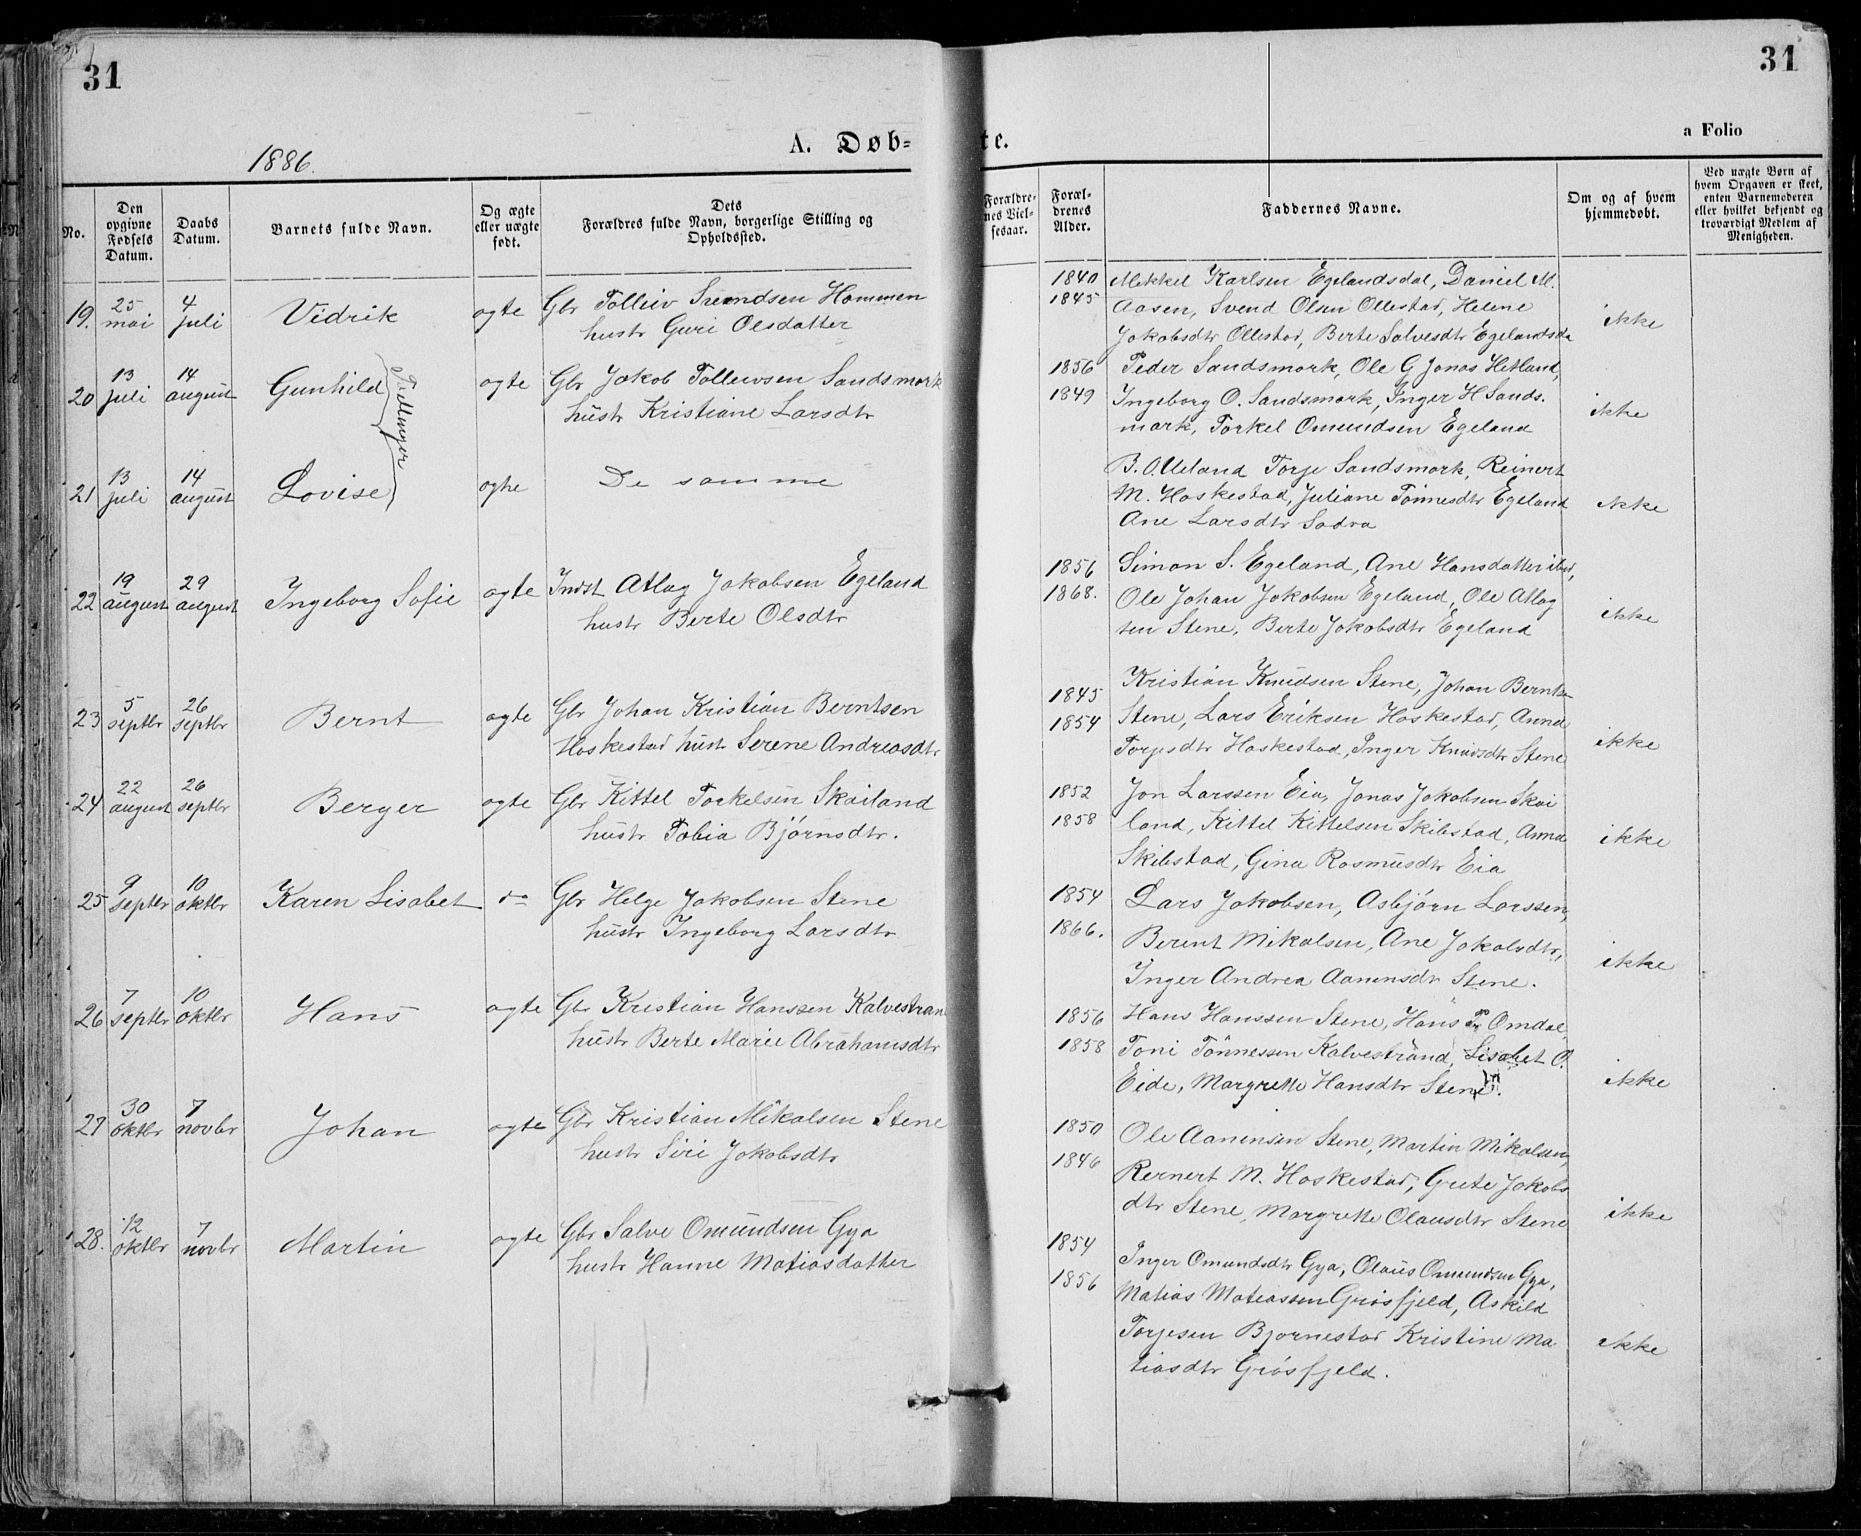 31
31
A. Døb-
te.
a Folio
1886.
No.
Den opgivne Fødsels Datum.
Daabs Datum.
Barnets fulde Navn.
Og ægte eller uægte født.
Dets Forældres fulde Navn, borgerlige Stilling og Opholdssted.
Forældrenes Vielsesaar.
Forældrenes Alder.
Faddernes Navne.
Om og af hvem hjemmedøbt.
Ved uægte Børn af hvem Opgaven er skeet, enten Barnemoderen eller hvilket bekjendt og troværdigt Medlem af Menigheden.
19. 25 mai 4 juli Vidrik ogte Gbr Tolleiv Svendsen Hommen
hustr Guri Olsdatter
1840 Mikkel Karlsen Egelandsdal, Daniel M.
1845 Aasen, Svend Olsen Ollestad, Helene
Jakobsdtr Ollestad, Berte Salvesdtr Egelandsda
ikke
20 13 juli 14 august Gunhild Tvillinger ogte Gbr Jakob Tollevsen Sandsmork
hustr Kristiane Larsdtr
1856 Peder Sandsmork, Ole G Jonas Hetland,
1849 Ingeborg O. Sandsmork, Inger H Sands.
mark, Torkel Omundsen Egeland
ikke
21 13 juli 14 august Lovise ogte De samme
B. O. Ueland Torje Sandsmork, Reinert
M. Haskestad, Juliane Tönnesdtr Egeland
Ane Larsdtr Sadra
ikke
22 19 august 29 august Ingeborg Sofie ogte Indst Atlag Jakobsen Egeland
hustr Berte Olsdtr
1856 Simon S. Egeland, Ane Hansdatter ibid,
1868. Ole Johan Jakobsen Egeland, Ole Atlag
sen Stene, Berte Jakobsdtr Egeland
ikke
23 5 septbr 26 septbr Bernt ogte Gbr Johan Kristian Berntsen
Haskestad hustr Serene Andreasdtr
Kristian Knudsen Stene, Johan Bernts
1845
1854 Stene, Lars Eriksen Haskestad, Anna
Torjesdtr Haskestad, Inger Knudsdtr Stene
ikke
24 22 august 26 septbr Berger ogte Gbr Kittel Torkelsen Skailand
hustr Tobia Bjørnsdtr.
1852 Jon Larssen Eia, Jonas Jakobsen Skai
1858 land, Kittel Kittelsen Skibstad, Anna
Skibstad, Gina Rasmusdtr Eia
ikke
25 9 septbr 10 oktbr Karen Lisabet do Gbr Helge Jakobsen Stene
hustr Ingeborg Larsdtr
1854 Lars Jakobsen, Asbjørn Larssen,
1866. Berent Mikalsen, Ane Jakobsdtr,
Inger Andrea Aanensdtr Stene.
ikke
26 7 septbr 10 oktbr Hans ogte Gbr Kristian Hanssen Kalvestran
hustr Berte Marie Abrahamsdtr
1856 Hans Hanssen Stene, Hans P Omdal,
1858 Toni Tönnessen Kalvestrand, Lisabet O.
Eide, Margrette Hansdtr Stene.
ikke
27 30 oktbr 7 novbr Johan ogte Gbr Kristian Mikalsen Stene
hustr Siri Jakobsdtr
1850 Ole Aanensen Stene, Martin Mikalsen,
1846 Rernert M. Haskestad, Grete Jakobs
dtr Stene, Margrette Olausdtr Stene
ikke
28. 12 oktbr 7 novbr Martin ogte Gbr Salve Omundsen Gya
hustr Hanne Matiasdatter
1854 Inger Omundsdtr Gya, Olaus Omundsen Gya,
1856 Matias Matiassen Grösfjeld, Askild
Torjesen Bjornestad Kristine Ma
tiasdtr Grösfjeld.
ikke